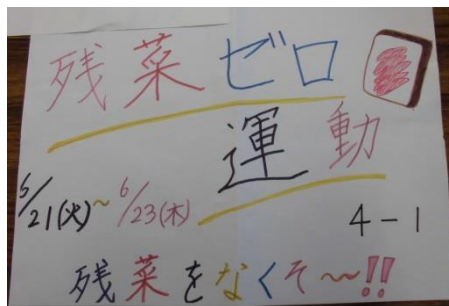 残菜ゼロ
運動
6/21(火)~6/23(木)
4-1
残菜をなくそ~!!